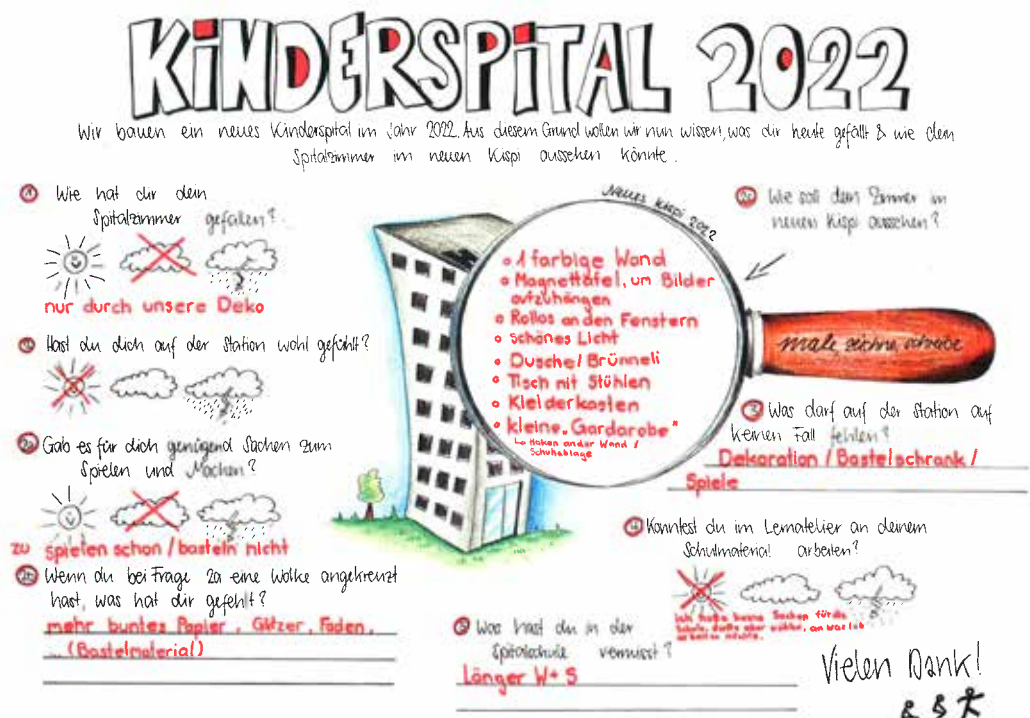 KINDERSPITAL 2022
Wir bauen ein neues Kinderspital im Jahr 2022. Aus diesem Grund wollen wir nun wissen, was dir heute gefällt & wie dein
Spitalzimmer im neuen Kispi aussehen könnte.
1 Wie hat dir dein
Spitalzimmer gefallen?
nur durch unsere Deko
Hast du dich auf der Station wohl gefühlt?
2a Gab es für dich genügend Sachen zum
Spielen und Machen?
zu spielen schon / basteln nicht
2b Wenn du bei Frage 2a eine Wolke angekreuzt
hast, was hat dir gefehlt?
mehr buntes Papier, Glitzer, Faden,
... (Bastelmaterial)
Neues Kispi 2022
1 farbige Wand
Magnettafel, um Bilder
aufzuhängen
Rollos an den Fenstern
schönes Licht
Dusche / Brünneli
Tisch mit Stühlen
Kleiderkasten
kleine „Gardarobe"
↳ Haken an der Wand /
Schuhablage
Wie soll dein Zimmer im
neuen Kispi aussehen?
male, zeichne, schreibe
3 Was darf auf der Station auf
keinen Fall fehlen?
Dekoration / Bastelschrank /
Spiele
4 Konntest du im Lernatelier an deinem
Schulmaterial arbeiten?
Ich hatte keine Sachen für die
Schule, durfte aber wählen, an was ich
arbeiten möchte.
5 Was hast du in der
Spitalschule vermisst?
Länger W+S
Vielen Dank!